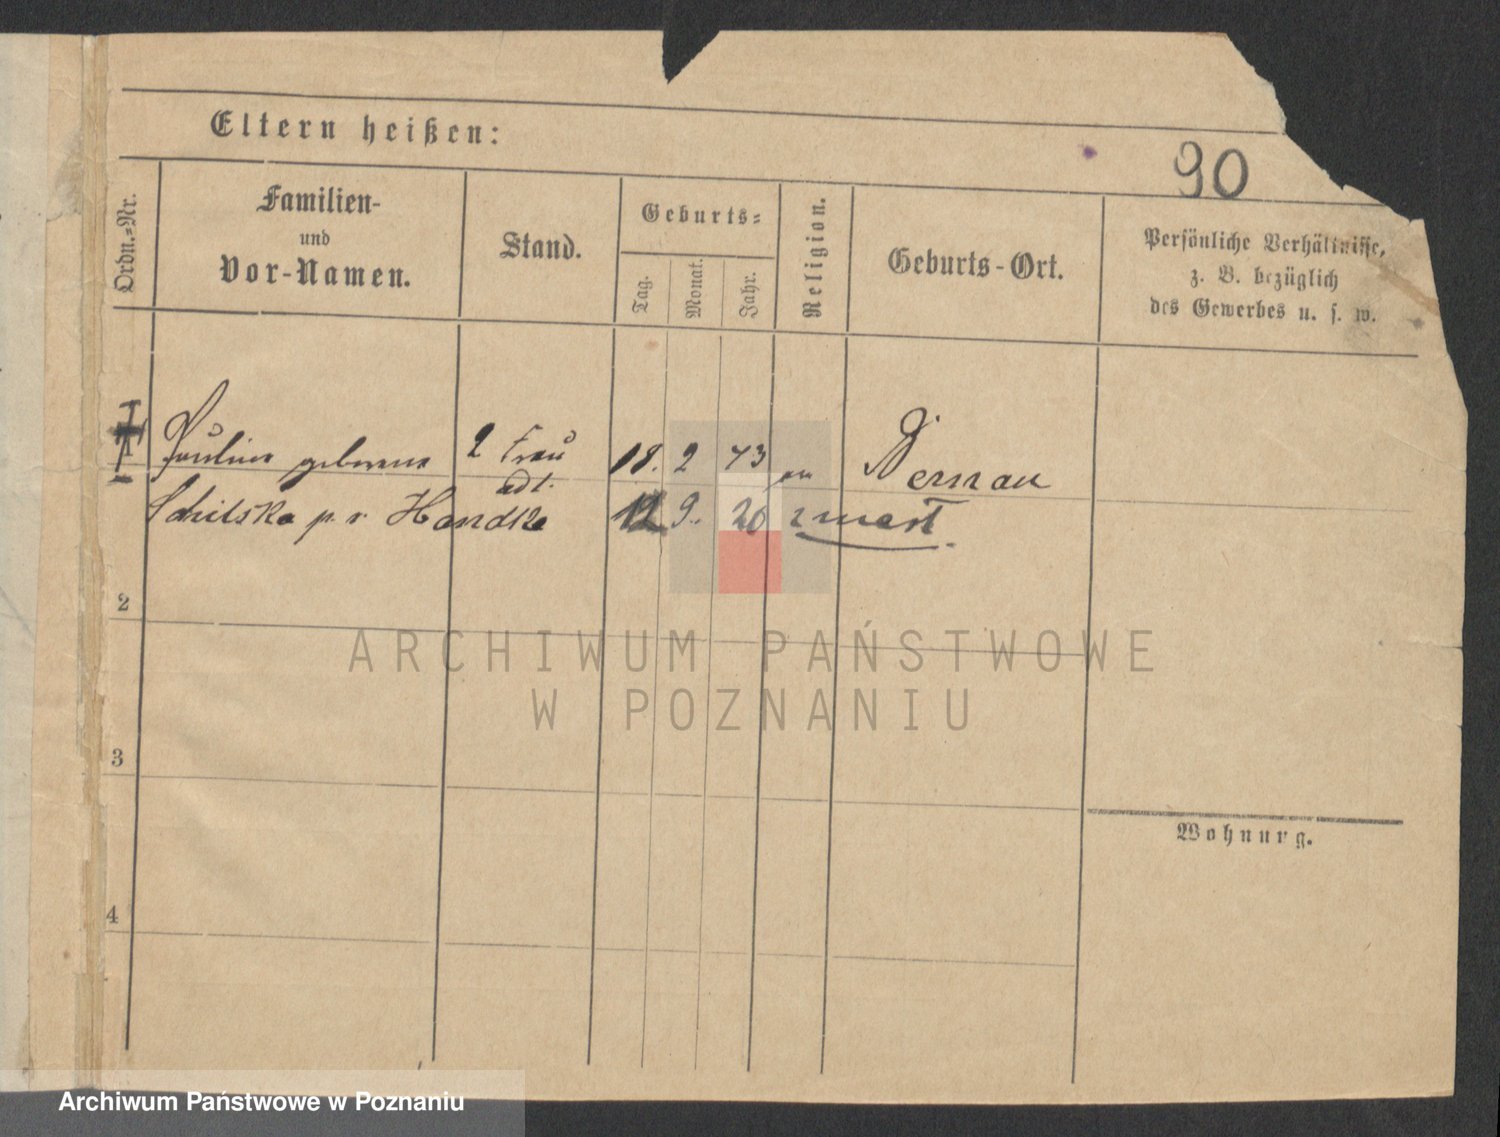 Eltern heißen:
90
Ordn.-Nr.
Familien-
und
Vor-Namen.
Stand.
Geburts-
Tag.
Monat.
Jahr.
Religion.
Geburts-Ort.
Persönliche Verhältnisse,
z. B. bezüglich
des Gewerbes u. s. w.
geborene 2 Frau 18. 2 73
p. v. Handke 12 9. 20 zmarł
2
3
4
Wohnung.
ARCHIWUM PAŃSTWOWE
W POZNANIU
Archiwum Państwowe w Poznaniu